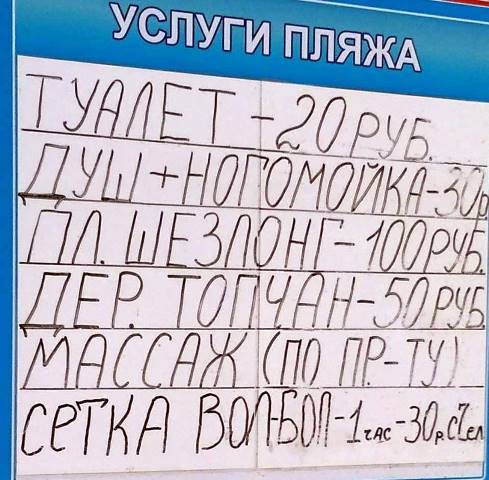 УСЛУГИ ПЛЯЖА
ТУАЛЕТ - 20 РУБ.
ДУШ + НОГОМОЙКА - 30р
ПЛ. ШЕЗЛОНГ - 100РУБ.
ДЕР. ТОПЧАН - 50РУБ
МАССАЖ (ПО ПР-ТУ)
СЕТКА ВОЛ-БОЛ - 1час - 30р. с 1чел